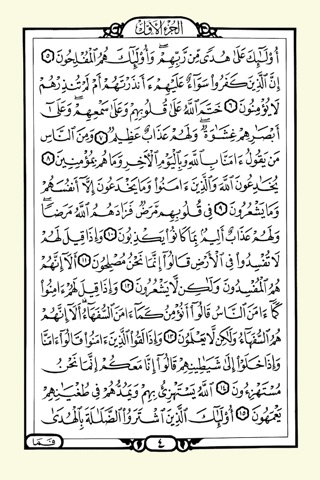 الجزء الأول
أُوْلَـٰئِكَ عَلَىٰ هُدًى مِّن رَّبِّهِمْ وَأُوْلَـٰئِكَ هُمُ الْمُفْلِحُونَ ٥
إِنَّ الَّذِينَ كَفَرُوا سَوَآءٌ عَلَيْهِمْ ءَأَنذَرْتَهُمْ أَمْ لَمْ تُنذِرْهُمْ
لَا يُؤْمِنُونَ ٦ خَتَمَ اللَّهُ عَلَىٰ قُلُوبِهِمْ وَعَلَىٰ سَمْعِهِمْ وَعَلَىٰ
أَبْصَـٰرِهِمْ غِشَـٰوَةٌ وَلَهُمْ عَذَابٌ عَظِيمٌ ٧ وَمِنَ النَّاسِ
مَن يَقُولُ ءَامَنَّا بِاللَّهِ وَبِالْيَوْمِ الْآخِرِ وَمَا هُم بِمُؤْمِنِينَ ٨
يُخَـٰدِعُونَ اللَّهَ وَالَّذِينَ ءَامَنُوا وَمَا يَخْدَعُونَ إِلَّآ أَنفُسَهُمْ
وَمَا يَشْعُرُونَ ٩ فِي قُلُوبِهِم مَّرَضٌ فَزَادَهُمُ اللَّهُ مَرَضًا
وَلَهُمْ عَذَابٌ أَلِيمٌ بِمَا كَانُوا يَكْذِبُونَ ١٠ وَإِذَا قِيلَ لَهُمْ
لَا تُفْسِدُوا فِي الْأَرْضِ قَالُوٓا إِنَّمَا نَحْنُ مُصْلِحُونَ ١١ أَلَآ إِنَّهُمْ
هُمُ الْمُفْسِدُونَ وَلَـٰكِن لَّا يَشْعُرُونَ ١٢ وَإِذَا قِيلَ لَهُمْ ءَامِنُوا
كَمَآ ءَامَنَ النَّاسُ قَالُوٓا أَنُؤْمِنُ كَمَآ ءَامَنَ السُّفَهَآءُ أَلَآ إِنَّهُمْ
هُمُ السُّفَهَآءُ وَلَـٰكِن لَّا يَعْلَمُونَ ١٣ وَإِذَا لَقُوا الَّذِينَ ءَامَنُوا قَالُوٓا ءَامَنَّا
وَإِذَا خَلَوْا إِلَىٰ شَيَـٰطِينِهِمْ قَالُوٓا إِنَّا مَعَكُمْ إِنَّمَا نَحْنُ
مُسْتَهْزِءُونَ ١٤ اللَّهُ يَسْتَهْزِئُ بِهِمْ وَيَمُدُّهُمْ فِي طُغْيَـٰنِهِمْ
يَعْمَهُونَ ١٥ أُوْلَـٰئِكَ الَّذِينَ اشْتَرَوُا الضَّلَـٰلَةَ بِالْهُدَىٰ
٤
فَمَا